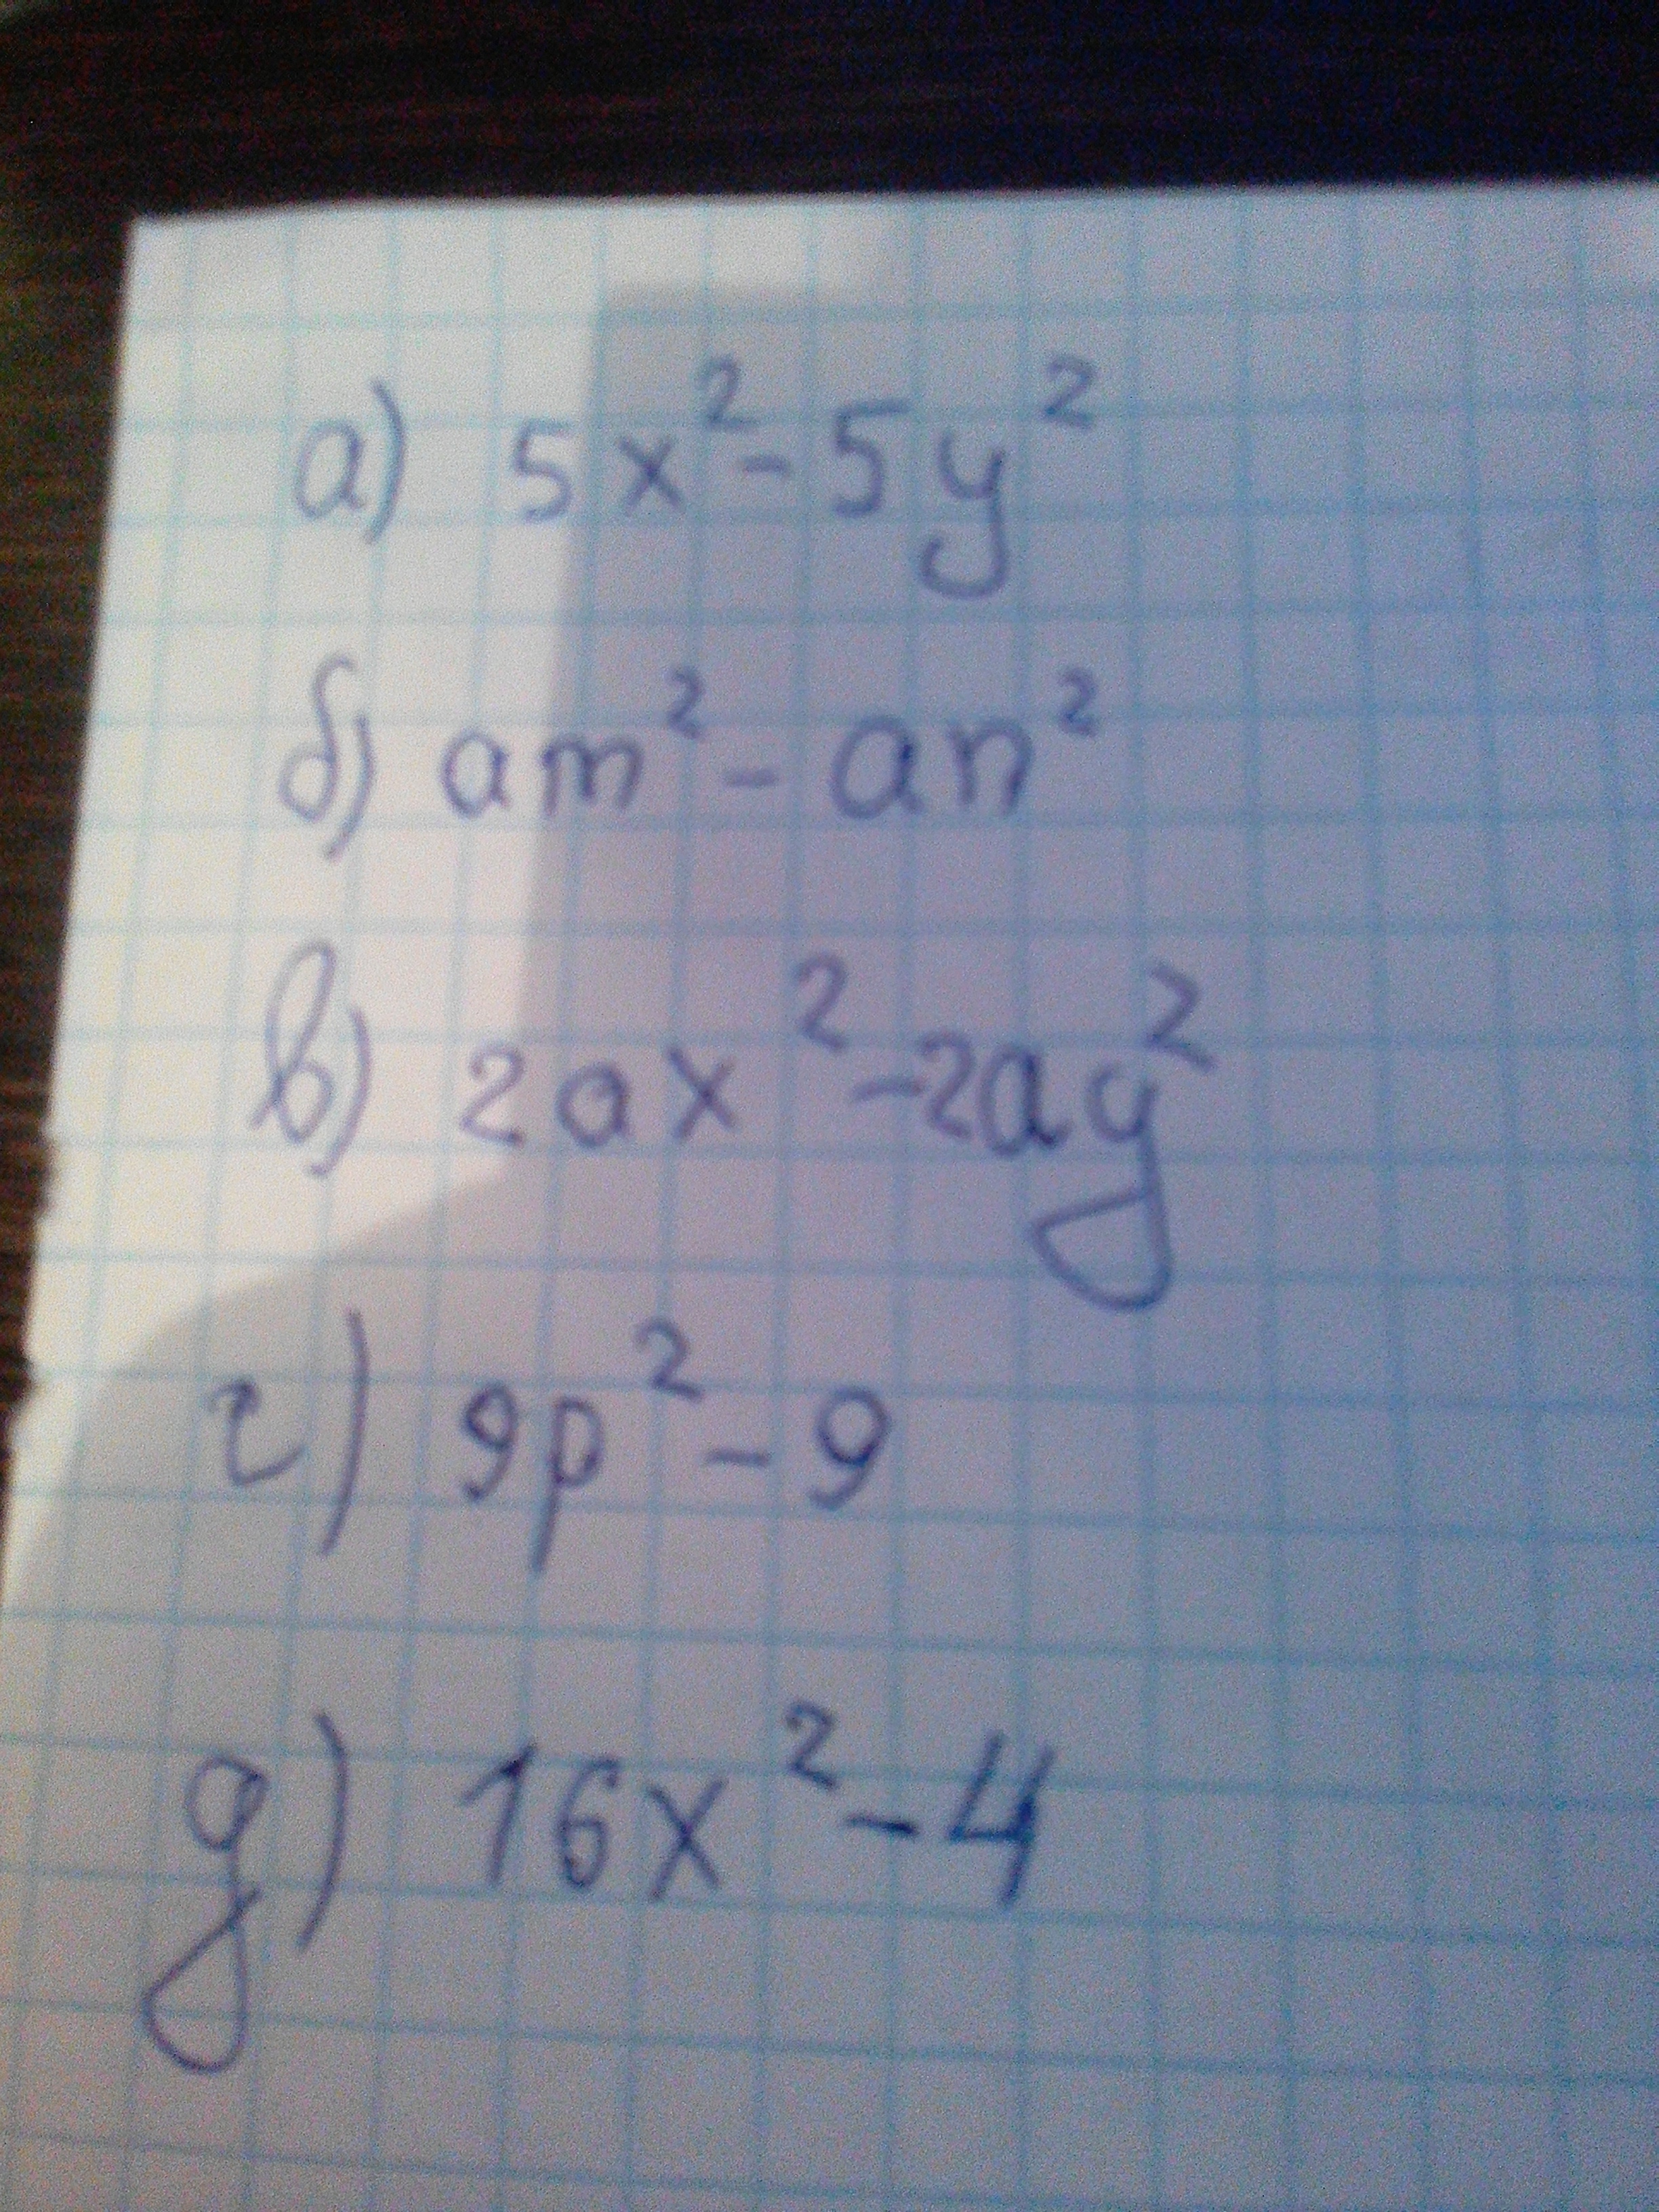 а) 5x² - 5y²
б) am² - an²
в) 2ax² - 2ay²
г) 9p² - 9
д) 16x² - 4